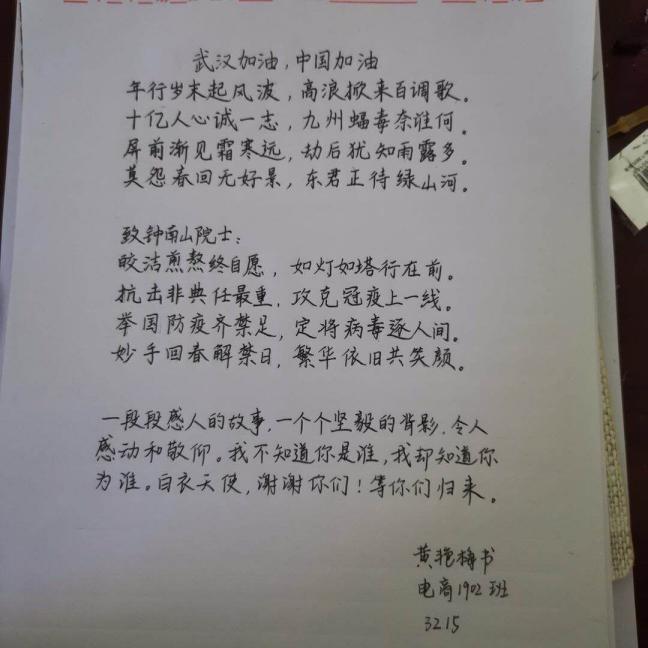 武汉加油，中国加油
年行岁末起风波，高浪掀来百调歌。
十亿人心诚一志，九州蝠毒奈谁何。
屏前渐见霜寒远，劫后犹知雨露多。
莫怨春回无好景，东君正待绿山河。
致钟南山院士：
皎洁煎熬终自愿，如灯如塔行在前。
抗击非典任最重，攻克冠疫上一线。
举国防疫齐禁足，定将病毒逐人间。
妙手回春解禁日，繁华依旧共笑颜。
一段段感人的故事，一个个坚毅的背影，令人
感动和敬仰。我不知道你是谁，我却知道你
为谁。白衣天使，谢谢你们！等你们归来。
黄艳梅书
电商1902班
3215